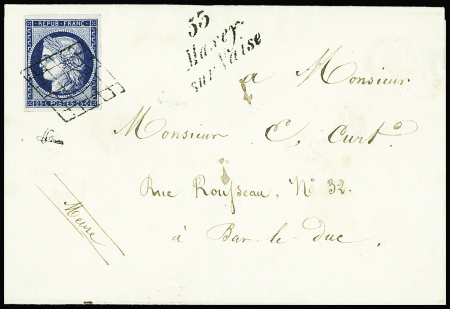 REPUB. FRANC.
25 C. POSTES 25 C.
55
Maxey
sur Vaise
a Monsieur
Monsieur C. Curt
Rue Rousseau, N° 32.
à Bar le duc,
Meuse